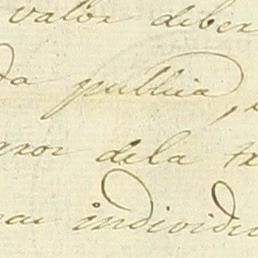 valor deber
da publica,
de la
individu